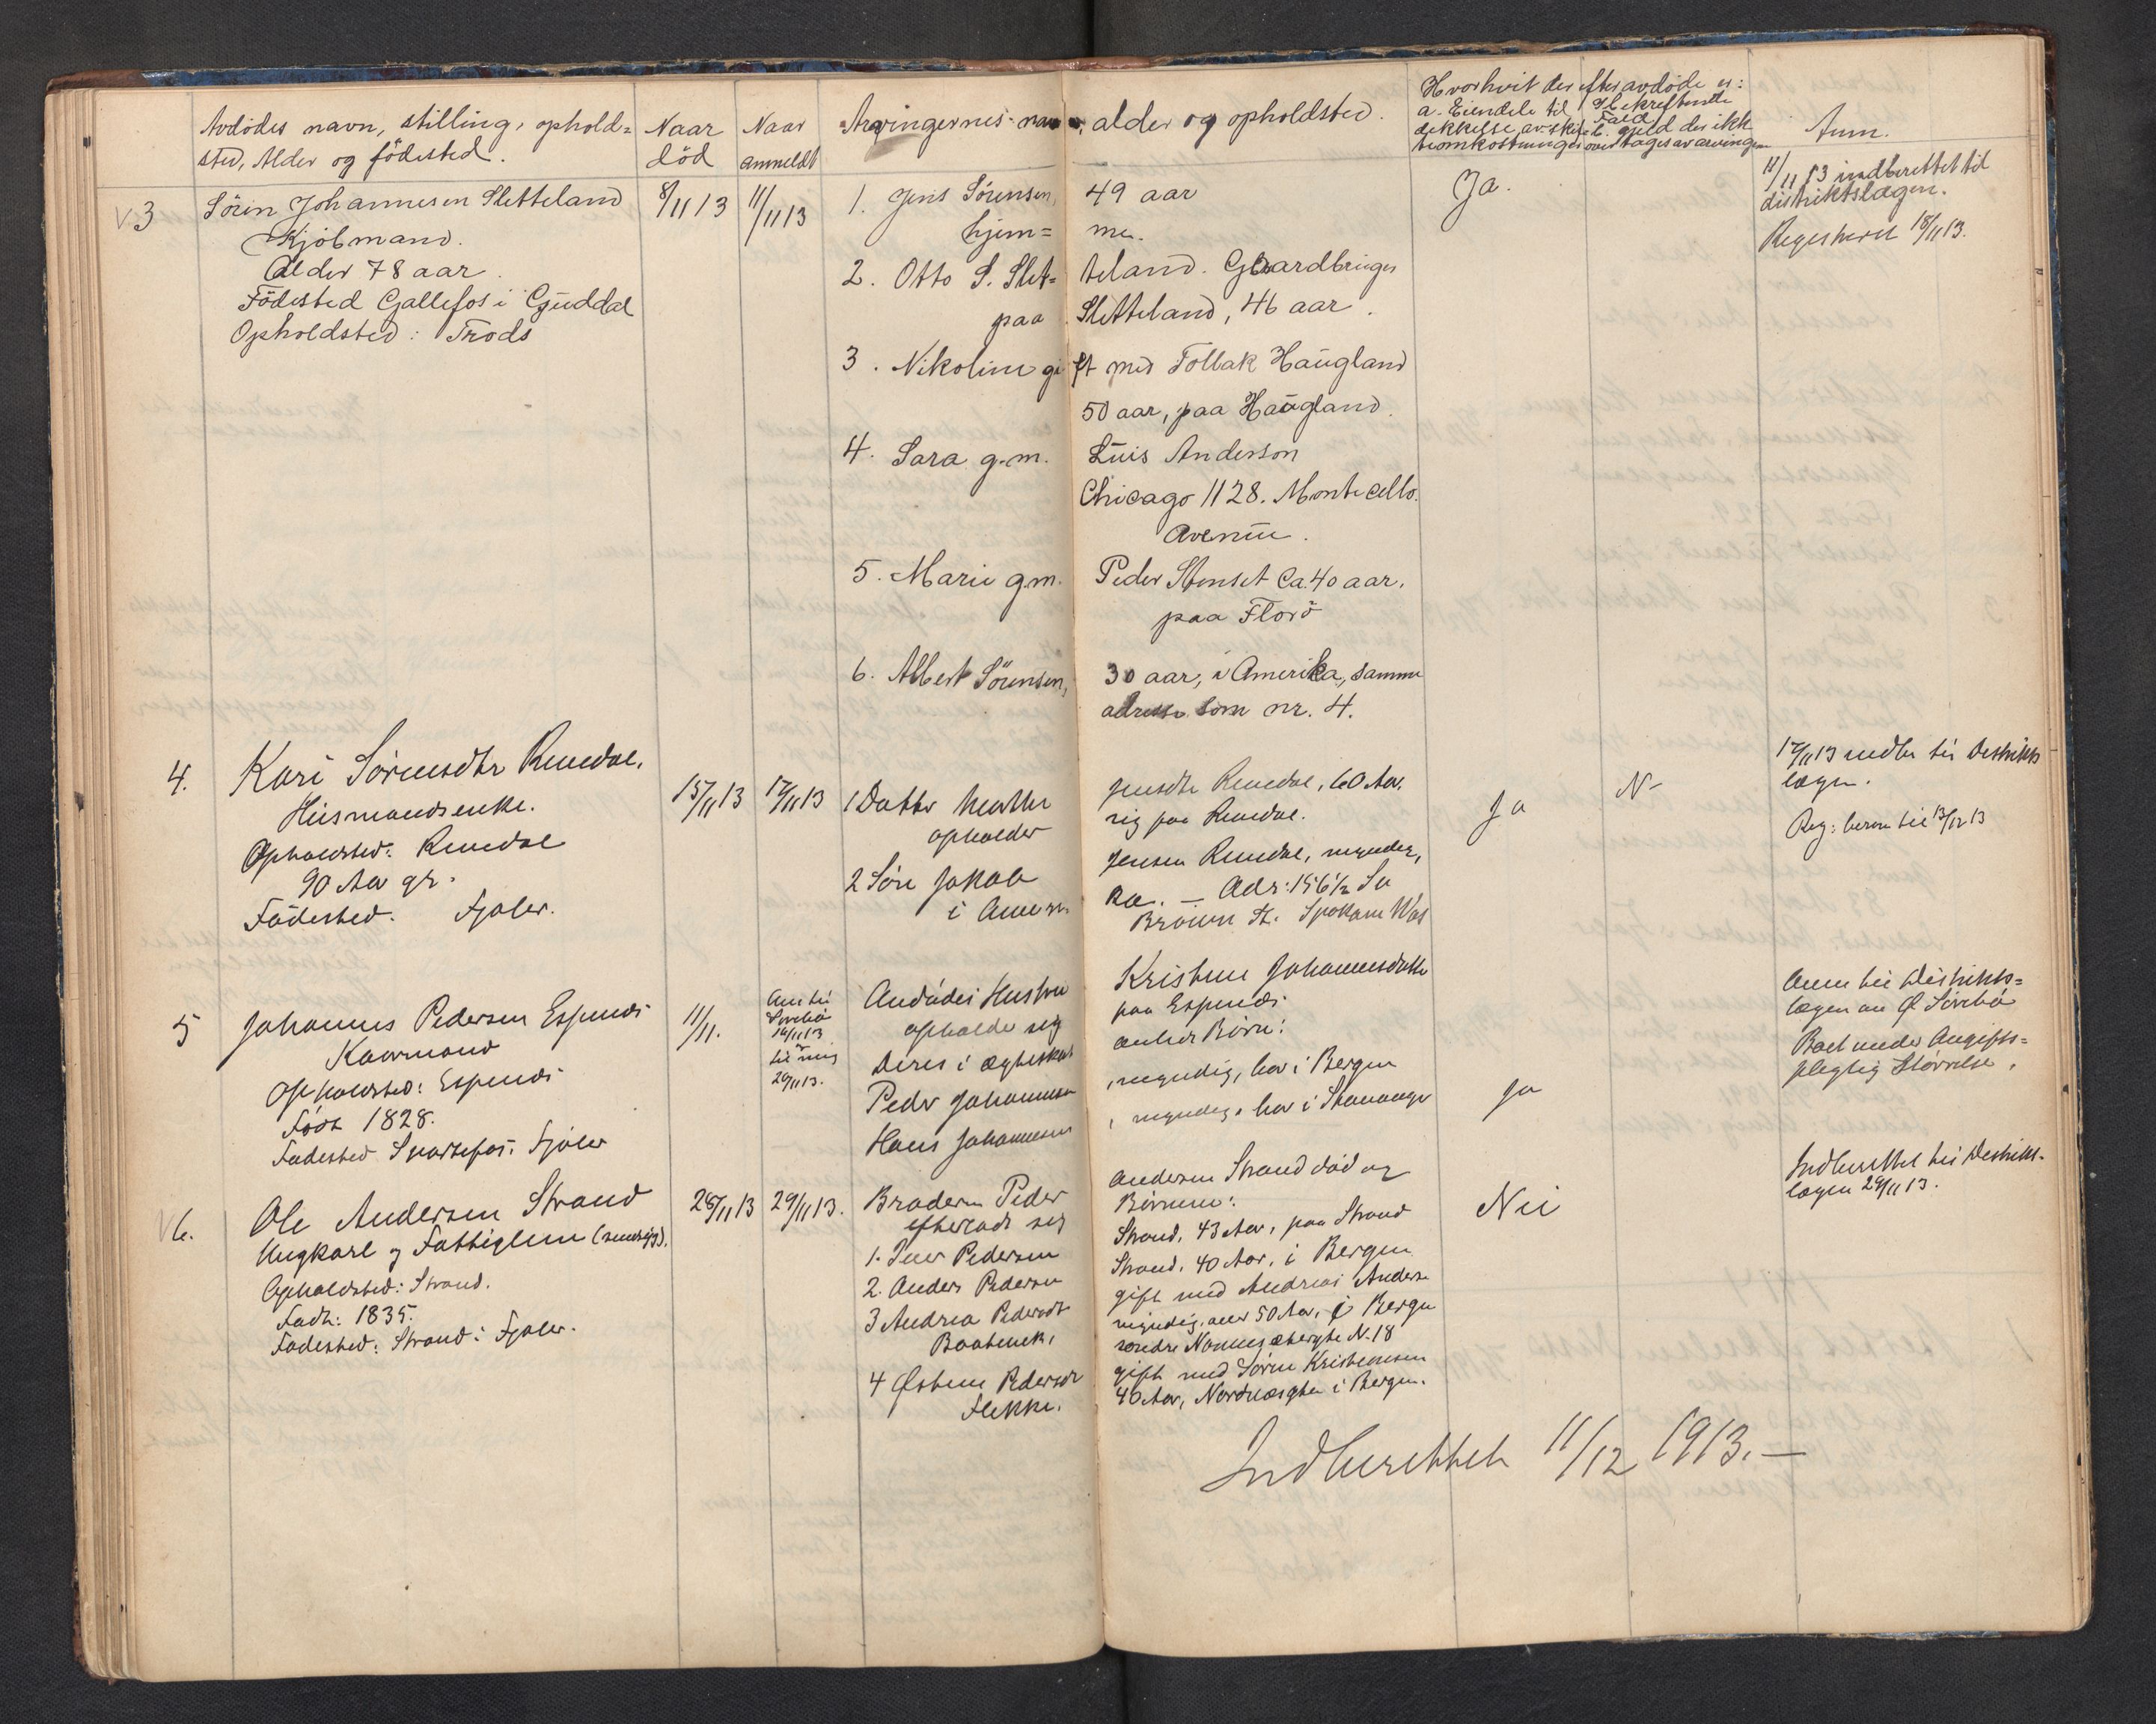 Avdödes navn, stilling, ophold=
sted, Alder og födested.
Naar
död
Naar
anmeldt
Arvingernes navn, alder og opholdsted.
Hvorhvit der efter avdöde er:
a. Eiendele til
dekkelse av skif-
teomkostninger
I bekreftende
Fald
b. gjeld der ikke
overtages av arvingene
Anm.
v 3
Sören Johannesen Sletteland
Kjöbmand.
Alder 78 aar.
Födested Gallefos i Guddal
Opholdsted: Trods
8/11 13
11/11 13
1. Jens Sörensen, 49 aar
hjem= me.
2. Otto S. Slet= teland. Gaardbruger
paa Sletteland, 46 aar.
3. Nikoline gi ft med Tollak Haugland
50 aar, paa Haugland.
4. Sara g.m. Luis Anderson
Chicago 1128. Monticello.
Avenue.
5. Marie g.m. Peder Stenset Ca. 40 aar.
paa Florö
6. Albert Sörensen, 30 aar, i Amerika, samme
adresse som nr. 4.
Ja.
11/11 13 indberettet til
distriktslægen.
Registrert 18/11 13.
4.
Kari Sörensdtr Remdal,
Husmandsenke.
Opholdsted: Remdal
90 Aar gr.
Födested: Fjaler.
15/11 13
17/11 13
1 Datter Marthe Jensdtr Remdal, 60 Aar,
opholder sig paa Remdal.
2 Sön Jakob Jensen Remdal, myndig,
i Amerika. — Adr: 156½ So
Brown St. Spokane Was
Ja
N-
17/11 13 indb. til Distrikts
lægen.
5
Johannes Pedersen Espenes
Kaarmand
Opholdsted: Espenes
Födt 1828.
Fødested Svartefos i Fjaler
11/11.
Anm til
16/11 13
til mig
29/11 13.
Avdødes Hustru Kristine Johannesdatter
opholder sig paa Espenes
Deres i Ægteskab avlede Børn:
Peder Johannesen, myndig, bor i Bergen
Hans Johannesen, myndig, bor i Stavanger
Ja
Anm til Distrikts=
lægen
Boet under Avgifts=
pligtig Størrelse.
v 6.
Ole Andersen Strand
Ungkarl og Fattiglem
Opholdsted: Strand.
Født: 1835.
Fødested: Strand i Fjaler.
28/11 13
29/11 13.
Broderen Peder Andersen Strand død og
efterladt seg Børnene:
1. Iver Pedersen Strand, 43 Aar, paa Strand
2. Anders Pedersen Strand, 40 Aar, i Bergen
3 Andrea Pedersdtr gift med Andreas Anders
myndig, over 50 Aar, i Bergen
søndre N. 18
4 Østine Pedersdtr gift med Sören Kristensen
Flekke. 40 Aar, i Bergen.
Nei
Indberettet til Distrikts-
lægen 29/11 13.
Indberettet 11/12 1913.—